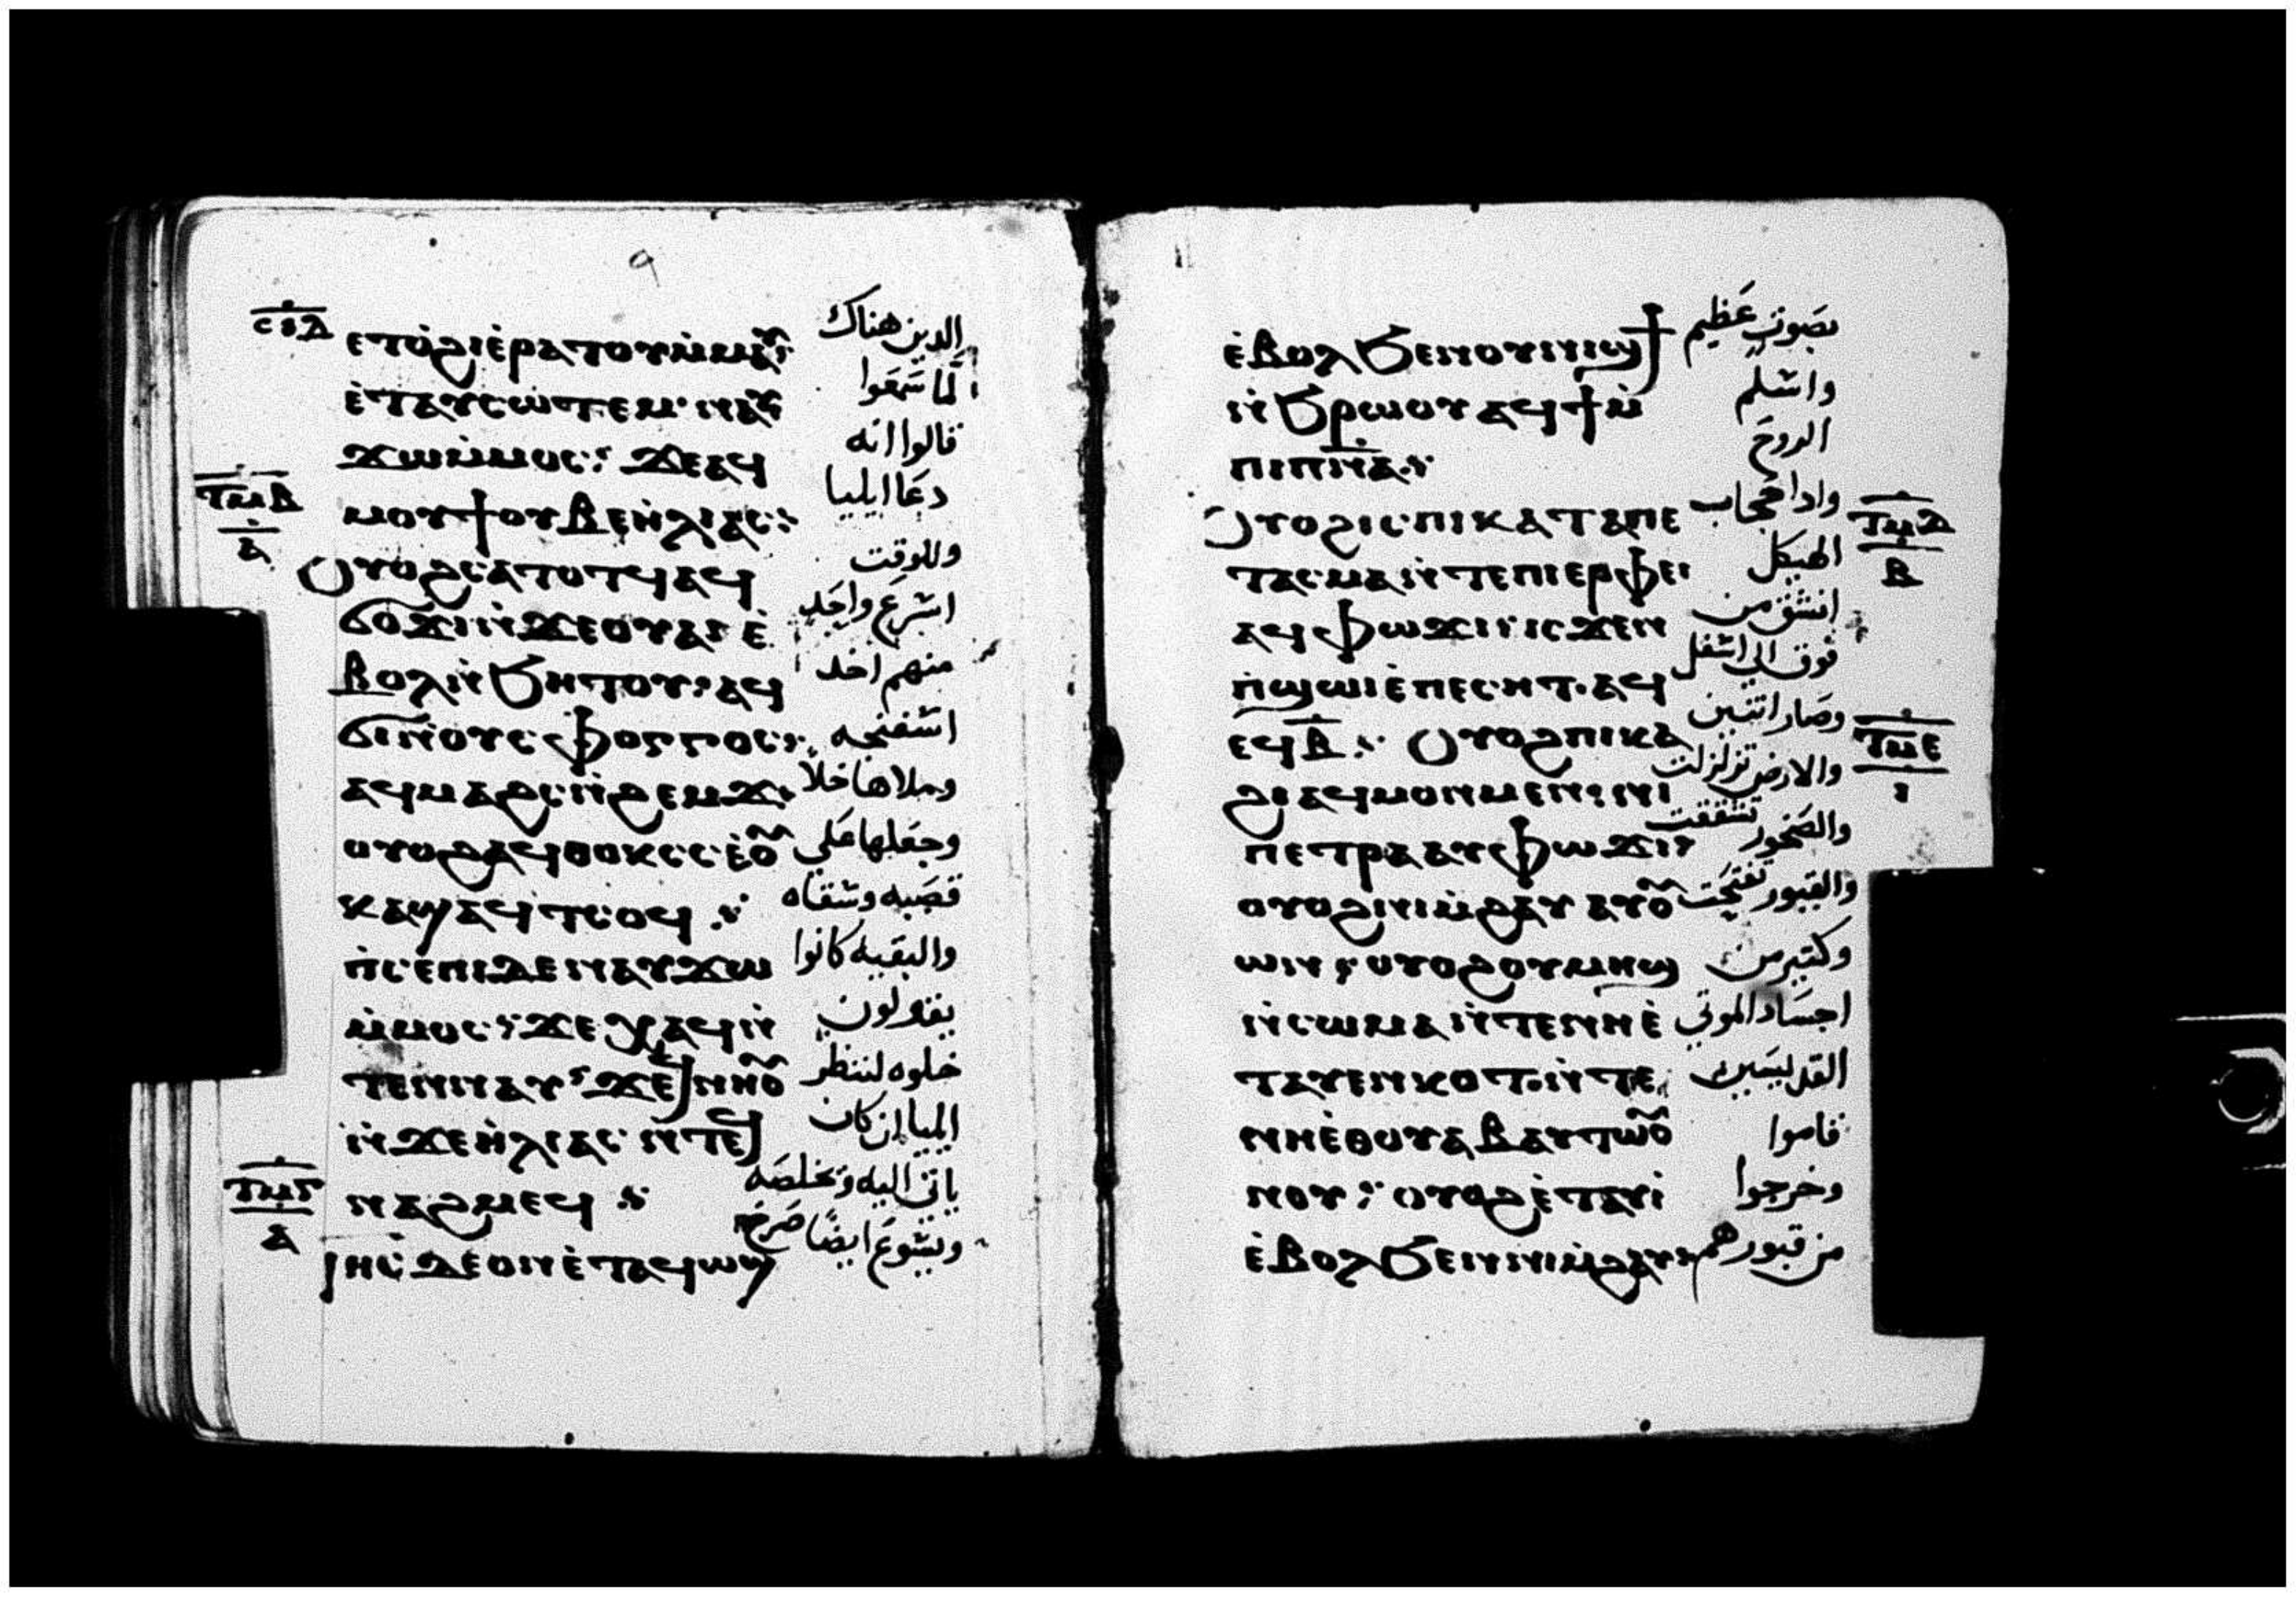 ٩
ⲥⲓⲇ ⲉⲧⲟ̀ϩⲓⲉ̀ⲣⲁⲧⲟⲩⲙ̀ⲙⲁⲩ الدين هناك
ⲉ̀ⲧⲁⲩⲥⲱⲧⲉⲙ ⲛⲁⲩ لما سَمعَوا
ϫⲱⲙ̀ⲙⲟⲥ: ϫⲉⲁϥ قالوا انه
ⲧⲙⲃ ⲙⲟⲩϯⲟⲩⲃⲉⲏ̀ⲗⲓⲁⲥ: دعَا ايليا
ⲁ ⲟⲩⲟϩⲥⲁⲧⲟⲧϥⲁϥ وللوقت
ϭⲟϫⲓⲛ̀ϫⲉⲟⲩⲁⲓ ⲉ̀ اسْرعَ واحَد
ⲃⲟⲗⲛ̀ϧⲏⲧⲟⲩ: ⲁϥ منهم اخد
ϭⲓⲛ̀ⲟⲩⲥⲫⲟⲅⲅⲟⲥ: اسْفنجه
ⲁϥⲙⲁϩⲥⲛ̀ϩⲉⲙϫ: وملاها خلاً
ⲟⲩⲟϩⲁϥⲑⲟⲕⲥⲥⲉ̀ⲟ̅ وجعَلها عَلي
ⲕⲁϣⲁϥⲧⲥⲟϥ ⁘ قصَبه وسْقاه
ⲡ̀ⲥⲉⲡⲓⲇⲉⲛⲁⲩϫⲱ والبقيه كانوا
ⲙ̀ⲙⲟⲥ: ϫⲉ ⲭⲁϥⲛ̀ يقولون
ⲧⲉⲛⲛⲁⲩ: ϫⲉϥⲛⲏⲟ̅ خلوه لننظر
ⲛ̀ϫⲉⲏ̀ⲗⲓⲁⲥ ⲛ̀ⲧⲉϥ ايليا ان كان
ⲧⲙⲅ ⲛⲁϩⲙⲉϥ ⁘ ياتى اليه وتخلصَه
ⲁ ⲓⲏⲥ̇ ⲇⲉⲟⲛⲉ̀ⲧⲁϥⲱϣ ويسْوعَ ايضًا صَرخ
ⲉ̀ⲃⲟⲗϧⲉⲛⲟⲩⲛⲓϣϯ بصَوت عَظيم
ⲛ̀ϧⲣⲱⲟⲩ ⲁϥϯⲙ̀ واسْلم
ⲡⲓⲡⲛⲁ̅ ⁘ الروحَ
ⲟⲩⲟϩⲓⲥ ⲡⲓⲕⲁⲧⲁⲡⲉ وادا حجَاب ⲧⲙⲇ
ⲧⲁⲥⲙⲁⲛ̀ⲧⲉⲡⲓⲉⲣⲫⲉⲓ الهيكل ⲃ
ⲁϥⲫⲱϫⲓ ⲓⲥϫⲉⲛ انشق من
ⲡ̀ϣⲱⲓⲉ̀ⲡⲉⲥⲏⲧ. ⲁϥ فوق الي اسْفل
ⲉϥⲃ̅: ⲟⲩⲟϩⲡⲓⲕⲁ وصَار اتنين ⲧⲙⲉ
ϩⲓⲁϥⲙⲟⲛⲙⲉⲛ: ⲛⲓ والارض تزلزلت ⲓ
ⲡⲉⲧⲣⲁⲁⲩⲫⲱϫⲓ: والصَخور تشققت
ⲟⲩⲟϩⲛⲓⲙ̀ϩⲁⲩ ⲁⲩⲟ̅ والقبور تفتحَت
ⲱⲛ: ⲟⲩⲟϩⲟⲩⲙⲏϣ وكتير من
ⲛ̀ⲥⲱⲙⲁⲛ̀ⲧⲉⲛⲏⲉ̀ اجسَاد الموتي
ⲧⲁⲩⲉⲛⲕⲟⲧ. ⲛ̀ⲧⲉ القديسَين
ⲛⲏⲉ̀ⲑⲟⲩⲁⲃⲁⲩⲧⲱⲟ̅ قاموا
ⲛⲟⲩ: ⲟⲩⲟϩⲉ̀ⲧⲁⲩⲓ̀ وخرجوا
ⲉ̀ⲃⲟⲗϧⲉⲛⲛⲓⲙ̀ϩⲁⲩ: من قبورهم